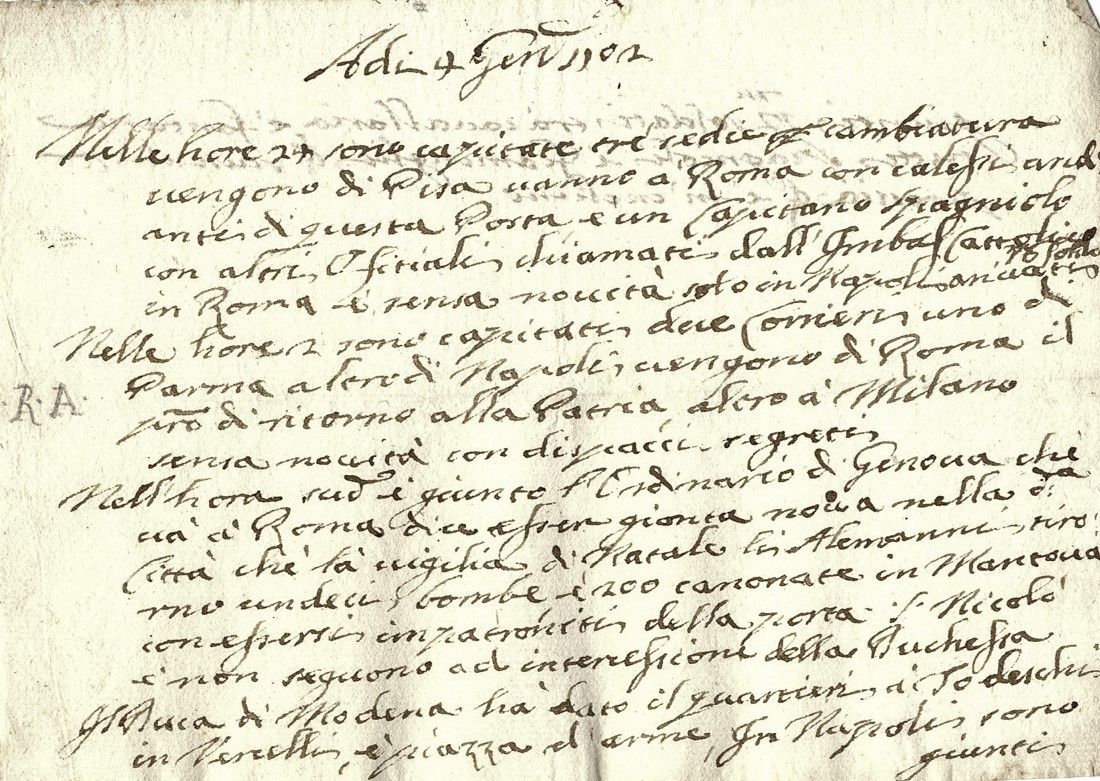 Adi 4 Gen 1702
Nelle hore 24 sono capitate tre sedie p cambiatura
vengono di Pisa vanno a Roma con calessi andi
anti di questa Posta e un Capitano Spagniolo
con altri Oficiali chiamati dall' Imbas Cattolico
in Roma è sensa novità solo in Napoli arivati
Nelle hore 2 sono capitati due Corrieri uno di
Parma altro di Napoli vengono di Roma il
pro di ritorno alla Patria altro à Milano
sensa novità con dispacci segreti
R. A.
Nell'hora sudo è giunto l'Ordinario di Genova che
và à Roma dice esser gionta nova nella da
Città che la vigilia di Natale li Alemanni tiro
rno undeci bombe è 200 canonate in Mantova
con essersi impatroniti della porta S. Nicolò
è non seguono ad intercessione della Duchessa
Il Duca di Modena hà dato il quartieri à Todeschi
in Vercelli, è piazza d'arme, In Napoli sono
giunti